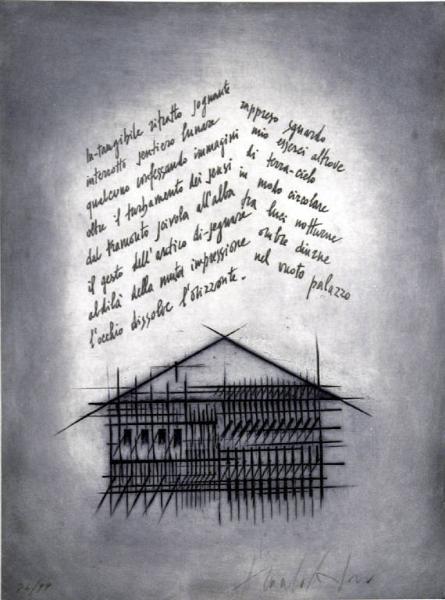 In-tangibile ritratto sognante rappreso sguardo
interrotti sentiero lunare mio esserci altrove
qualcuno confessando immagini di terra-cielo
oltre il turbamento dei sensi in modo circolare
dal tramonto scivola all'alba tra luci notturne
il gesto dell'antico di-segnare ombre diurne
aldilà della muta impressione nel vuoto palazzo
l'occhio dissolve l'orizzonte.